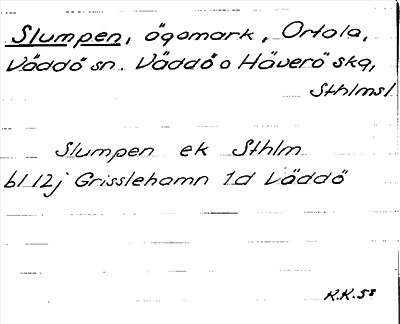 Slumpen, ägomark, Ortala,
Väddö sn. Väddö o Häverö skg,
Sthlmsl
Slumpen ek Sthlm
bl 12j Grisslehamn 1d Väddö
R.K. 58